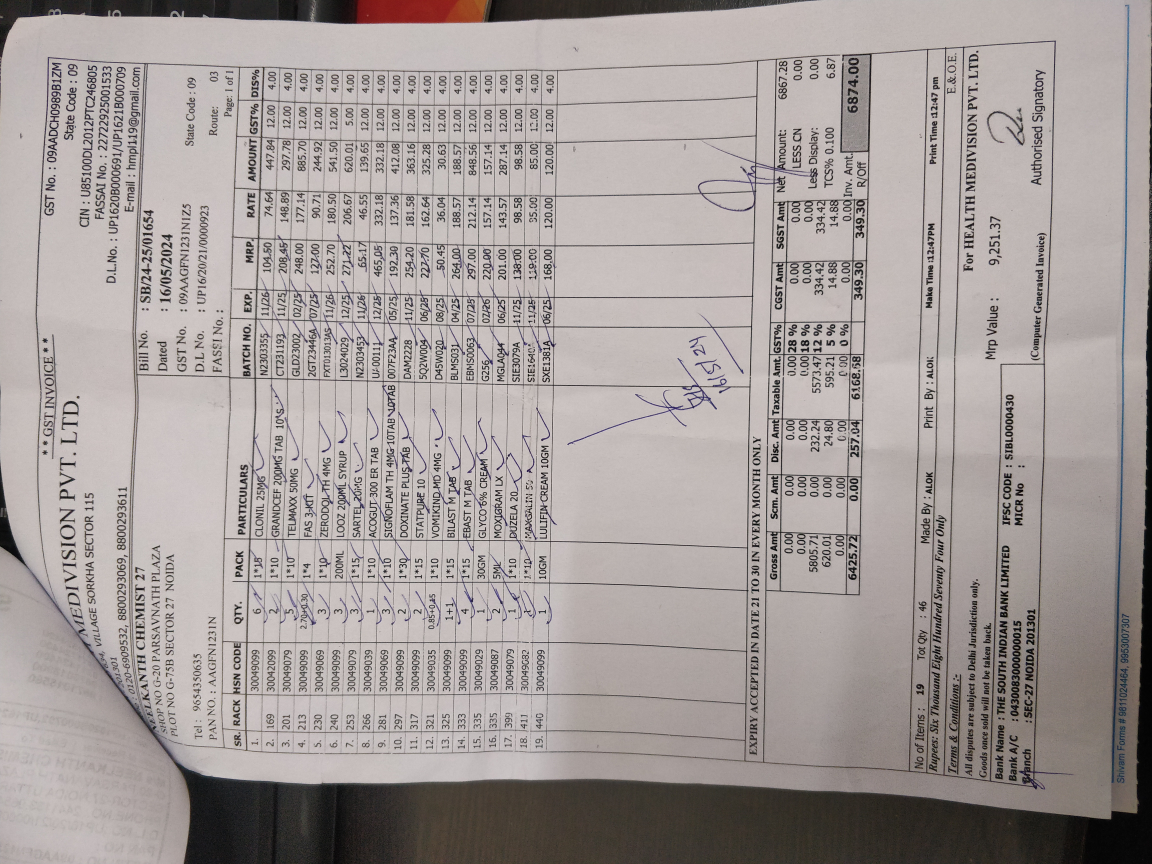 ** GST INVOICE **
MEDIVISION PVT. LTD.
VILLAGE SORKHA SECTOR 115
201301
: 0120-6909532, 8800293069, 8800293611
GST No. : 09AADCH0989B1ZM
State Code : 09
CIN : U85100DL2012PTC246805
FASSAI No. : 22722925001533
D.L.No. : UP1620B000691/UP1621B000709
E-mail : hmpl19@gmail.com
NEELKANTH CHEMIST 27
SHOP NO G-20 PARSAVNATH PLAZA
PLOT NO G-75B SECTOR 27 NOIDA
Tel : 9654350635
PAN NO. : AAGFN1231N
Bill No. : SB/24-25/01654
Dated : 16/05/2024
GST No. : 09AAGFN1231N1Z5 State Code : 09
D.L No. : UP16/20/21/0000923 Route: 03
FASSI No. : Page: 1 of 1
SR. RACK HSN CODE QTY. PACK PARTICULARS BATCH NO. EXP. MRP. RATE AMOUNT GST% DIS%
1. 30049099 6 1*10 CLONIL 25MG N2303355 11/26 104.50 74.64 447.84 12.00 4.00
2. 169 30042099 2 1*10 GRANDCEF 200MG TAB 10'S CT231193 11/25 208.45 148.89 297.78 12.00 4.00
3. 201 30049079 5 1*10 TELMAXX 50MG GLD23002 02/25 248.00 177.14 885.70 12.00 4.00
4. 213 30049099 2.70+0.30 1*4 FAS 3-KIT 2GT23446A 07/25 127.00 90.71 244.92 12.00 4.00
5. 230 30049069 3 1*10 ZERODOL TH 4MG 11/26 252.70 180.50 541.50 12.00 4.00
6. 240 30049099 3 200ML LOOZ 200ML SYRUP L3024029 12/25 271.22 206.67 620.01 5.00 4.00
7. 253 30049079 3 1*15 SARTEL 20MG N2303453 11/26 65.17 46.55 139.65 12.00 4.00
8. 266 30049039 1 1*10 ACOGUT 300 ER TAB 12/25 465.05 332.18 332.18 12.00 4.00
9. 281 30049069 3 1*10 SIGNOFLAM TH 4MG 10TAB 10TAB 007F23AA 05/25 192.30 137.36 412.08 12.00 4.00
10. 297 30049099 2 1*30 DOXINATE PLUS TAB DAM2228 11/25 254.20 181.58 363.16 12.00 4.00
11. 317 30049099 2 1*15 STATPURE 10 5Q2W004 06/28 227.70 162.64 325.28 12.00 4.00
12. 321 30049035 0.85+0.15 1*10 VOMIKIND MD 4MG D45W020 08/25 50.45 36.04 30.63 12.00 4.00
13. 325 30049099 1+1 1*15 BILAST M TAB BLMS031 04/25 264.00 188.57 188.57 12.00 4.00
14. 333 30049099 4 1*15 EBAST M TAB EBMS0063 07/25 297.00 212.14 848.56 12.00 4.00
15. 335 30049029 1 30GM GLYCO 6% CREAM G256 07/26 220.00 157.14 157.14 12.00 4.00
16. 335 30049087 2 5ML MOXIGRAM LX MGLA044 06/25 201.00 143.57 287.14 12.00 4.00
17. 399 30049079 1 1*10 DUZELA 20 SIE3079A 11/25 138.00 98.58 98.58 12.00 4.00
18. 411 30049082 1 1*10 11/25 119.00 85.00 85.00 12.00 4.00
19. 440 30049099 1 10GM LULIFIN CREAM 10GM SXE1381A 06/25 168.00 120.00 120.00 12.00 4.00
16/5/24
EXPIRY ACCEPTED IN DATE 21 TO 30 IN EVERY MONTH ONLY
Gross Amt Scm. Amt Disc. Amt Taxable Amt. GST% CGST Amt SGST Amt
0.00 0.00 0.00 0.00 28 % 0.00 0.00
0.00 0.00 0.00 0.00 18 % 0.00 0.00
5805.71 0.00 232.24 5573.47 12 % 334.42 334.42
620.01 0.00 24.80 595.21 5 % 14.88 14.88
0.00 0.00 0.00 0.00 0 % 0.00 0.00
6425.72 0.00 257.04 6168.68 349.30 349.30
Net. Amount: 6867.28
LESS CN 0.00
Less Display: 0.00
TCS% 0.100 6.87
Inv. Amt. 6874.00
R/Off
No of Items : 19 Tot Qty : 46 Made By : ALOK Print By : ALOK Make Time :12:47PM Print Time :12:47 pm
Rupees: Six Thousand Eight Hundred Seventy Four Only E.&.O.E.
Terms & Conditions :-
All disputes are subject to Delhi Jurisdiction only.
Goods once sold will not be taken back.
Mrp Value : 9,251.37
For HEALTH MEDIVISION PVT. LTD.
Bank Name : THE SOUTH INDIAN BANK LIMITED IFSC CODE : SIBL0000430
Bank A/C : 0430083000000015 MICR No :
Branch : SEC-27 NOIDA 201301
(Computer Generated Invoice)
Authorised Signatory
Shivam Forms # 9811024464, 9953007307